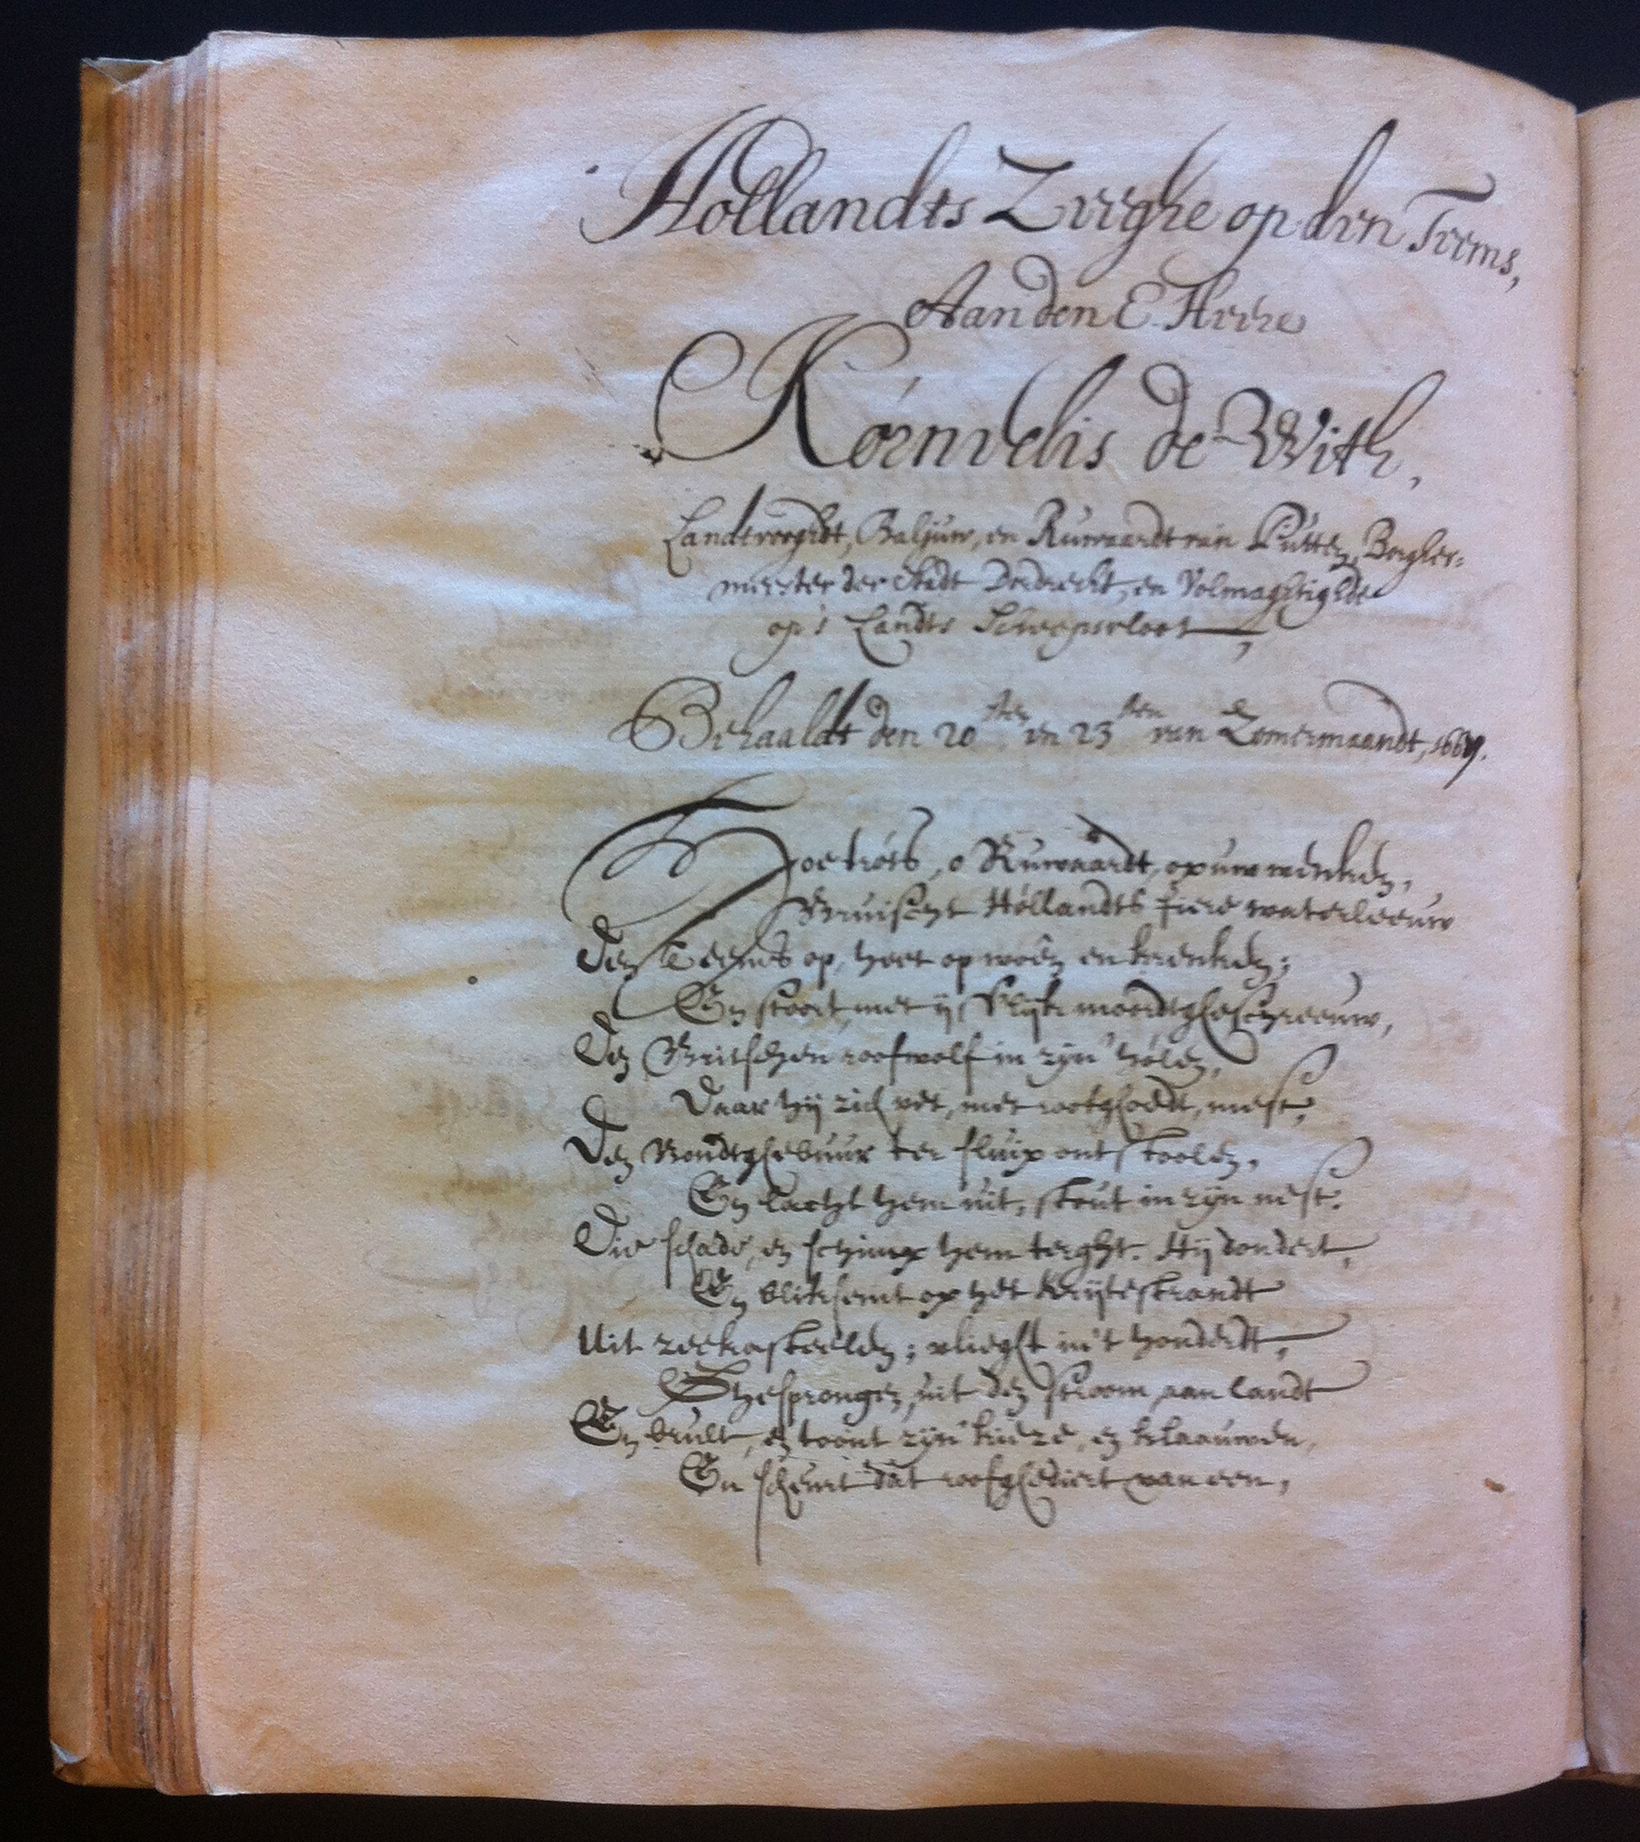 Hollandts Zeeghe op den Teems,
Aan den E. Heere
Kornelis de With,
Landtvooghdt, Baljuw, en Ruwaardt van Putten, Borgher-
meester der Stadt Dordrecht, en Volmaghtighde
op 's Landts Scheepsvloot,
Behaaldt den 20sten en 23sten van Zomermaandt, 1667.
Hoe trots, o Ruwaardt, op uw wenken,
Bruischt Hollandts fiere waterleeuw
Den Teems op, heet op woên en krenken;
En stoort, met ijslijk moordtgheschreeuw,
Den Britschen roofwolf in zijn' holen,
Daar hij zich vet, met roofghoedt, mest,
Den Bondtghebuur ter sluip ontstoolen,
En lacht hem uit, stout in zijn nest.
Die schade, en schimp hem terght. Hij dondert,
En bliksemt op het krijtestrandt
Uit zeekasteelen; vlieght in 't hondert,
Ghesprongen, uit den stroom, aan landt
En brult, en toont zijn' kieze, en klaauwen,
En scheurt dat roofghediert van een,